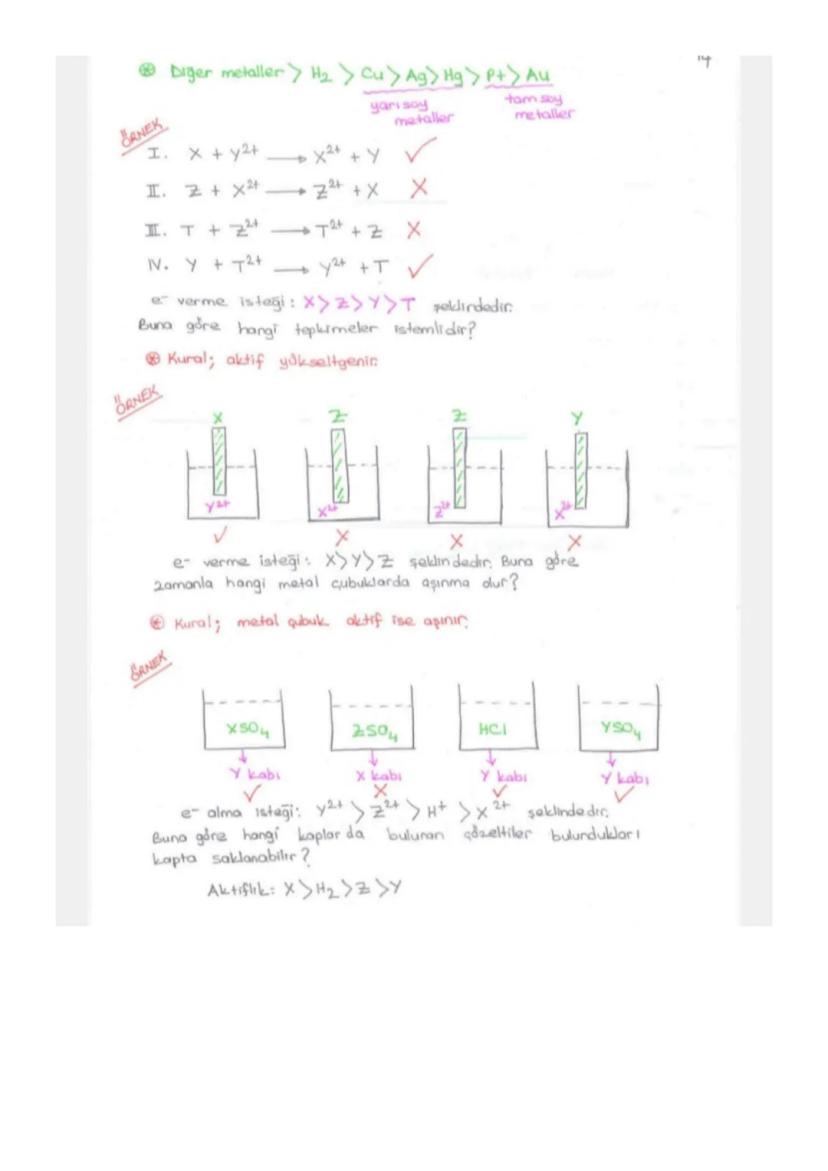 14
⊛ Diğer metaller > H₂ > Cu > Ag > Hg > Pt > Au
yarı soy metaller
tam soy metaller
ÖRNEK
I. X + Y²⁺ ⟶ X²⁺ + Y ✓
II. Z + X²⁺ ⟶ Z²⁺ + X X
III. T + Z²⁺ ⟶ T²⁺ + Z X
IV. Y + T²⁺ ⟶ Y²⁺ + T ✓
e⁻ verme isteği : X > Z > Y > T şeklindedir.
Buna göre hangi tepkimeler istemlidir?
⊛ Kural; aktif yükseltgenir.
ÖRNEK
X Z Z Y
Y²⁺ X²⁺ Z²⁺ X²⁺
✓ X X X
e⁻ verme isteği : X > Y > Z şeklindedir. Buna göre
zamanla hangi metal çubuklarda aşınma olur?
⊛ Kural; metal çubuk aktif ise aşınır.
ÖRNEK
XSO₄ ZSO₄ HCl YSO₄
Y kabı X kabı Y kabı Y kabı
✓ X ✓ ✓
e⁻ alma isteği : Y²⁺ > Z²⁺ > H⁺ > X²⁺ şeklindedir.
Buna göre hangi kaplarda bulunan çözeltiler bulundukları
kapta saklanabilir?
Aktiflik: X > H₂ > Z > Y